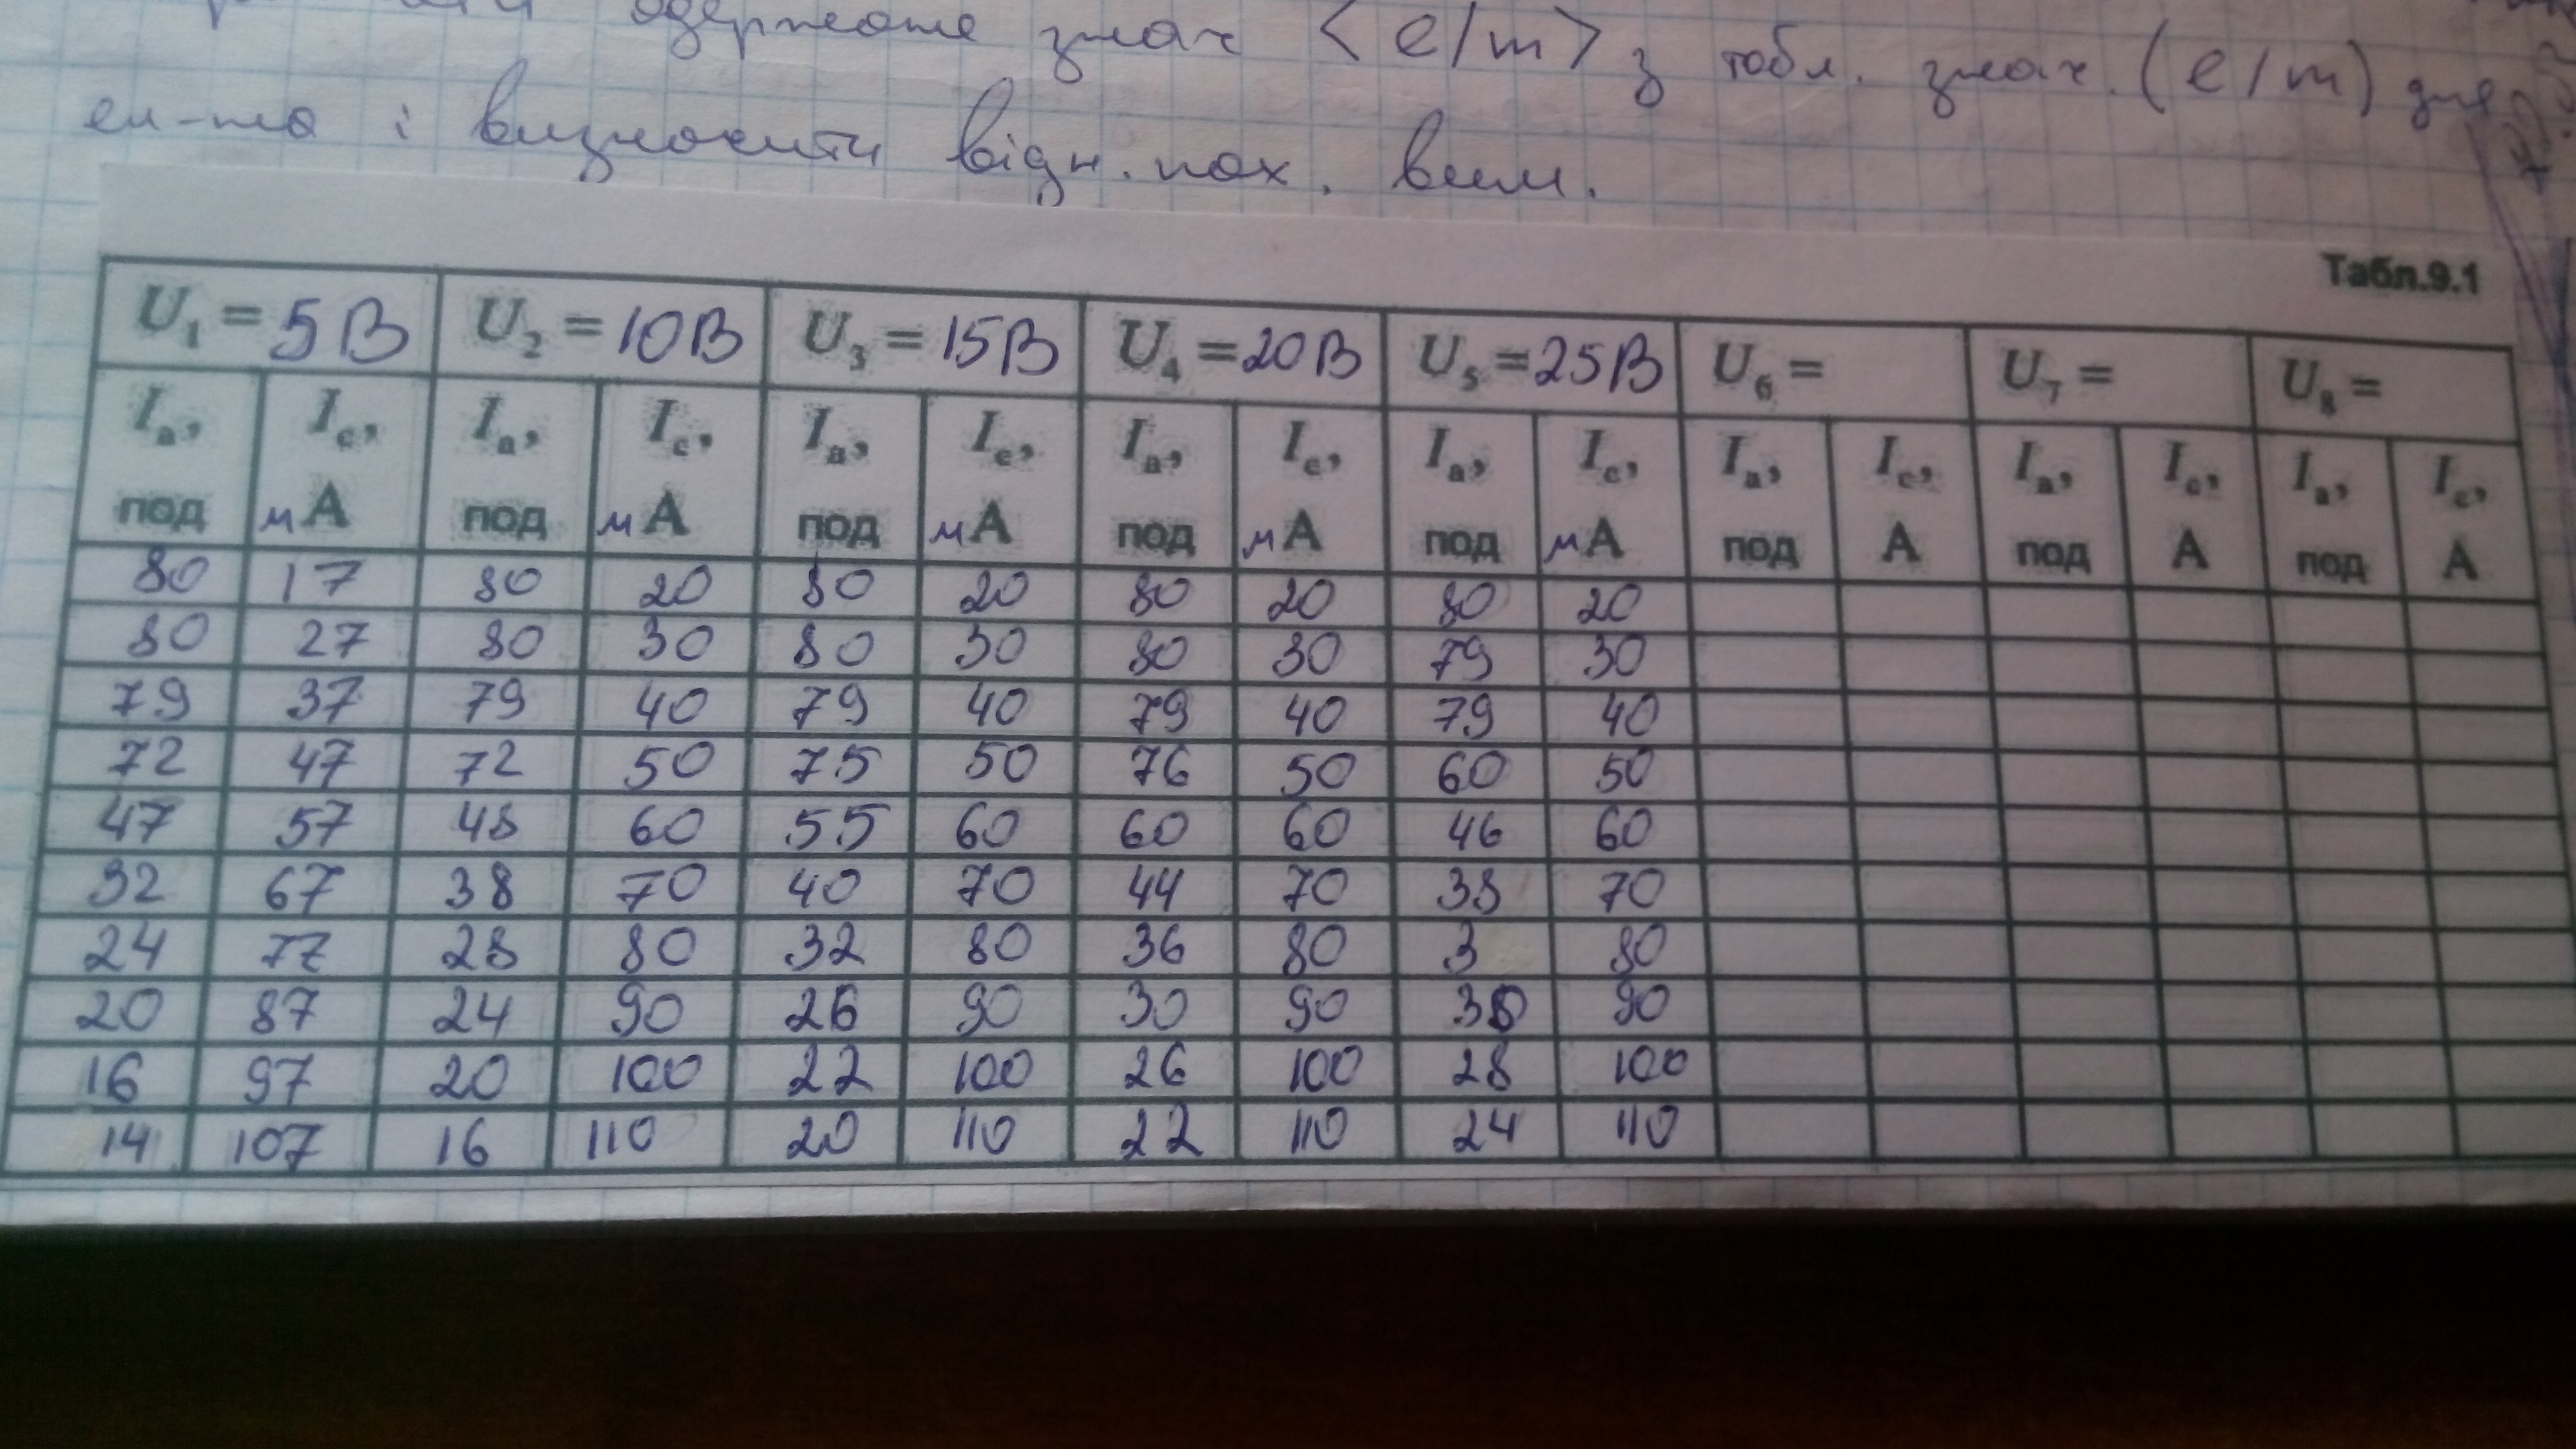 одержане знач <e/m> з табл. знач. (e/m) для
ел-на і визначити відн. пох. вим.
Табл.9.1
U₁ = 5В U₂ = 10В U₃ = 15В U₄ = 20В U₅ = 25В U₆ = U₇ = U₈ =
Iₐ, I_c, Iₐ, I_c, Iₐ, I_c, Iₐ, I_c, Iₐ, I_c, Iₐ, I_c, Iₐ, I_c, Iₐ, I_c,
под мА под мА под мА под мА под мА под А под А под А
80 17 80 20 80 20 80 20 80 20
80 27 80 30 80 30 80 30 79 30
79 37 79 40 79 40 79 40 79 40
72 47 72 50 75 50 76 50 60 50
47 57 48 60 55 60 60 60 46 60
32 67 38 70 40 70 44 70 38 70
24 77 28 80 32 80 36 80 3 80
20 87 24 90 26 90 30 90 30 90
16 97 20 100 22 100 26 100 28 100
14 107 16 110 20 110 22 110 24 110